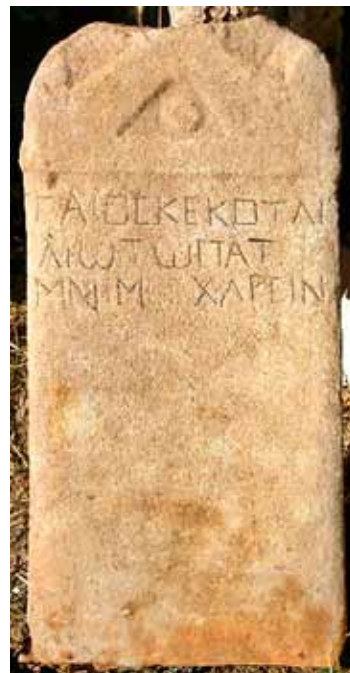 ΓΑΙΟϹΚΕΚΟΤΑΙ
ΛΙΩΤΩΠΑΤ
ΜΝΗΜ ΧΑΡΕΙΝ